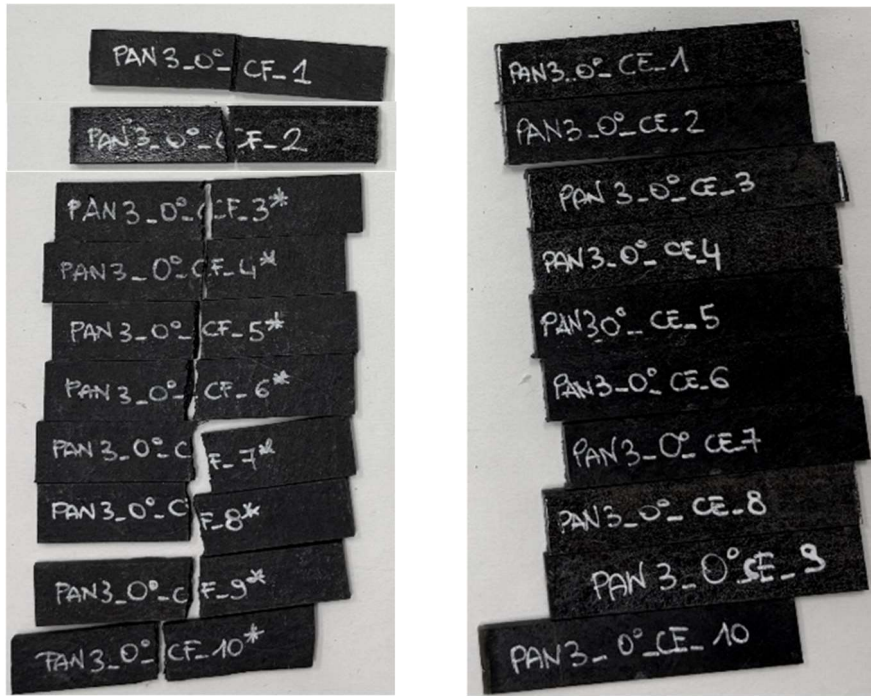 PAN3_0°_CF_1
PAN3_0°_CF_2
PAN3_0°_CF_3*
PAN3_0°_CF_4*
PAN3_0°_CF_5*
PAN3_0°_CF_6*
PAN3_0°_CF_7*
PAN3_0°_CF_8*
PAN3_0°_CF_9*
PAN3_0°_CF_10*
PAN3_0°_CE_1
PAN3_0°_CE_2
PAN3_0°_CE_3
PAN3_0°_CE_4
PAN30°_CE_5
PAN3_0°_CE_6
PAN3_0°_CE_7
PAN3_0°_CE_8
PAN3_0°_CE_9
PAN3_0°_CE_10